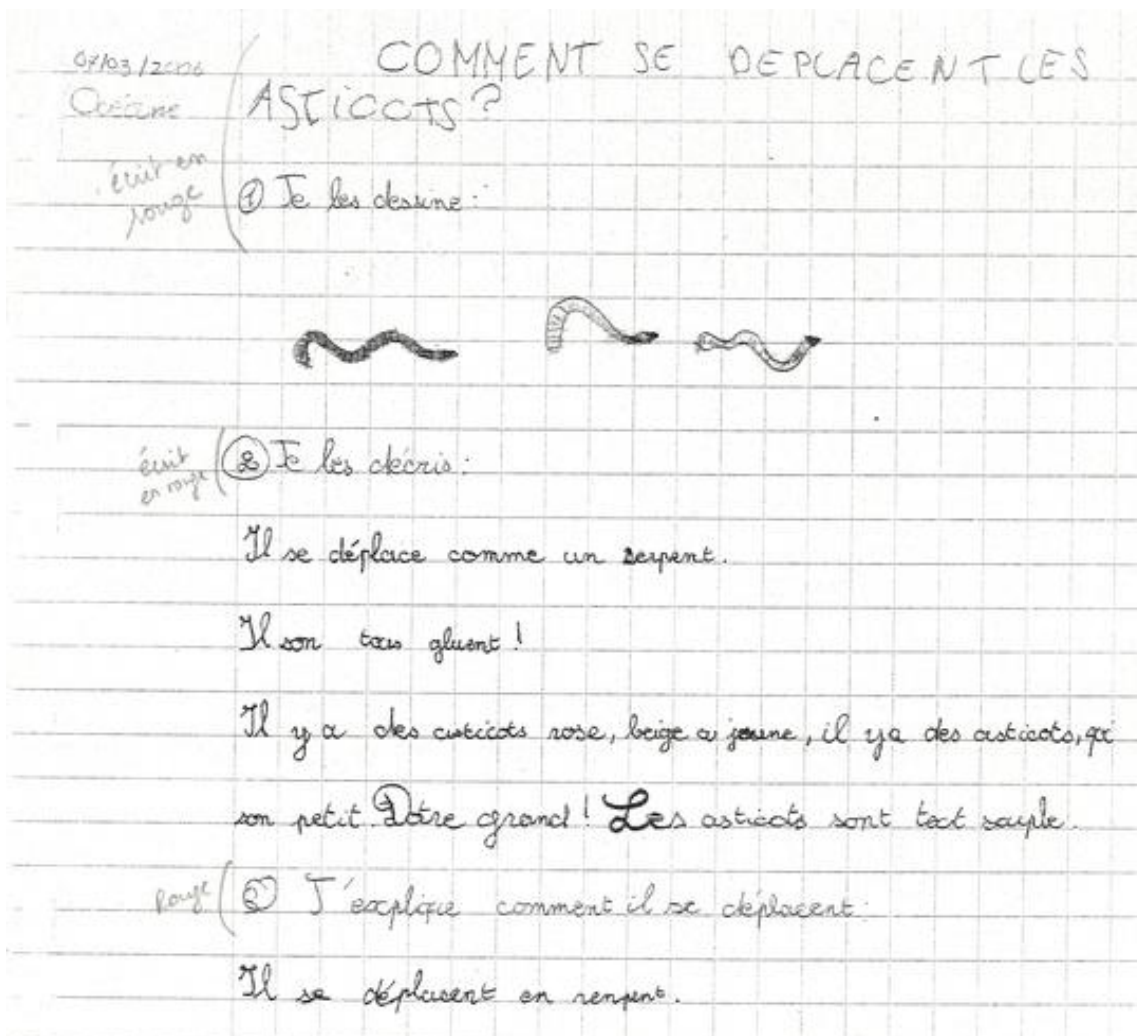 07/03/2006
Océane
écrit en
rouge
COMMENT SE DEPLACENT LES
ASTICOTS?
① Je les dessine:
écrit
en rouge
② Je les décris:
Il se déplace comme un serpent.
Il son tous gluent!
Il y a des asticots rose, beige a jaune, il ya des asticots, qi
son petit. Dotre grand! Les asticots sont tout souple.
Rouge
③ J'explique comment il se déplacent:
Il se déplacent en renpent.